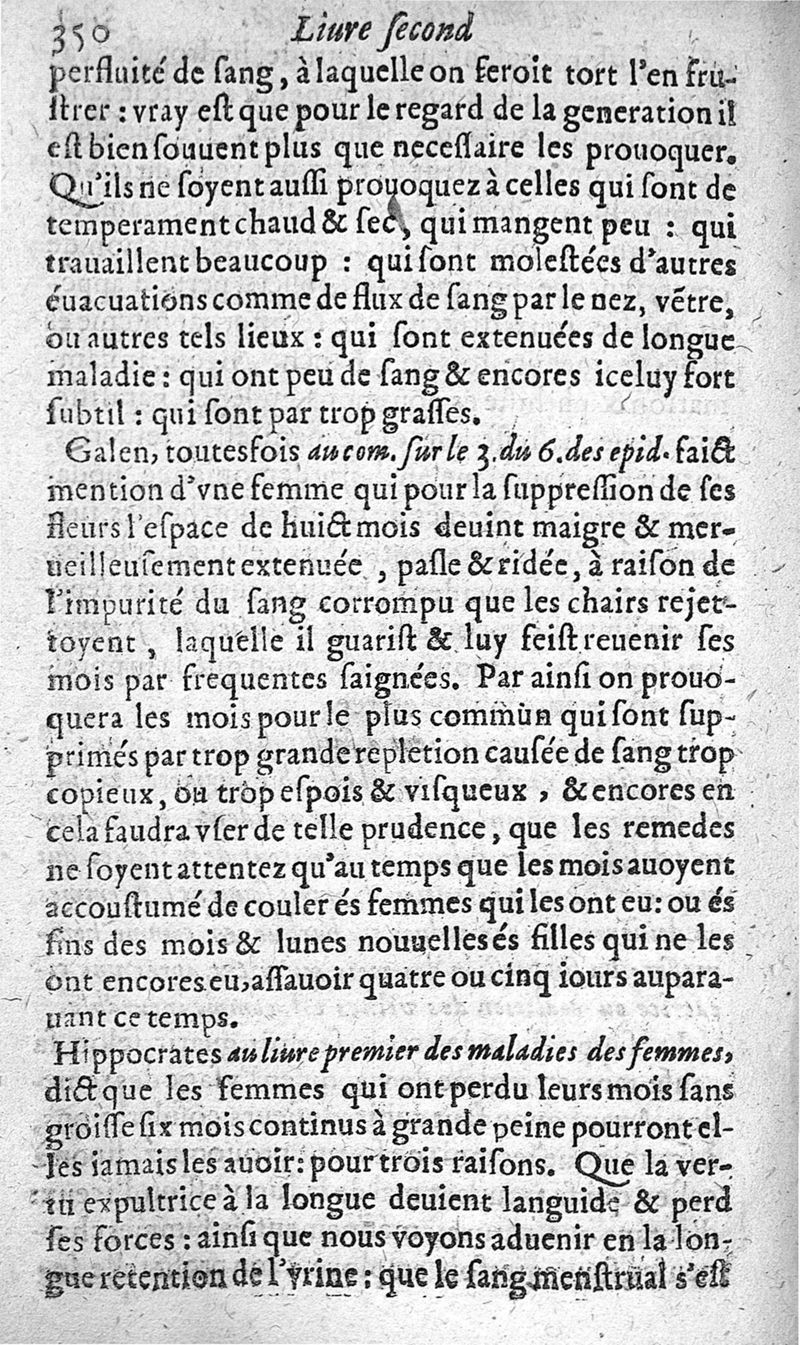 350 Liure ſecond
perfluité de ſang, à laquelle on feroit tort l'en fru-
ſtrer : vray eſt que pour le regard de la generation il
eſt bien ſouuent plus que neceſſaire les prouoquer.
Qu'ils ne ſoyent auſſi prouoquez à celles qui ſont de
temperament chaud & ſec, qui mangent peu : qui
trauaillent beaucoup : qui ſont moleſtées d'autres
éuacuations comme de flux de ſang par le nez, vẽtre,
ou autres tels lieux : qui ſont extenuées de longue
maladie : qui ont peu de ſang & encores iceluy fort
ſubtil : qui ſont par trop graſſes.
Galen, toutesfois au com. ſur le 3. du 6. des epid. faict
mention d'vne femme qui pour la ſuppreſſion de ſes
fleurs l'eſpace de huict mois deuint maigre & mer-
ueilleuſement extenuée , paſle & ridée, à raiſon de
l'impurité du ſang corrompu que les chairs rejet-
toyent , laquelle il guariſt & luy feiſt reuenir ſes
mois par frequentes ſaignées. Par ainſi on prouo-
quera les mois pour le plus commun qui ſont ſup-
primés par trop grande repletion cauſée de ſang trop
copieux, ou trop eſpois & viſqueux , & encores en
cela faudra vſer de telle prudence, que les remedes
ne ſoyent attentez qu'au temps que les mois auoyent
accouſtumé de couler és femmes qui les ont eu: ou és
fins des mois & lunes nouuelles és filles qui ne les
ont encores eu, aſſauoir quatre ou cinq iours aupara-
uant ce temps.
Hippocrates au liure premier des maladies des femmes,
dict que les femmes qui ont perdu leurs mois ſans
groiſſe ſix mois continus à grande peine pourront el-
les iamais les auoir: pour trois raiſons. Que la ver-
tu expultrice à la longue deuient languide & perd
ſes forces : ainſi que nous voyons aduenir en la lon-
gue retention de l'vrine : que le ſang menſtrual s'eſt